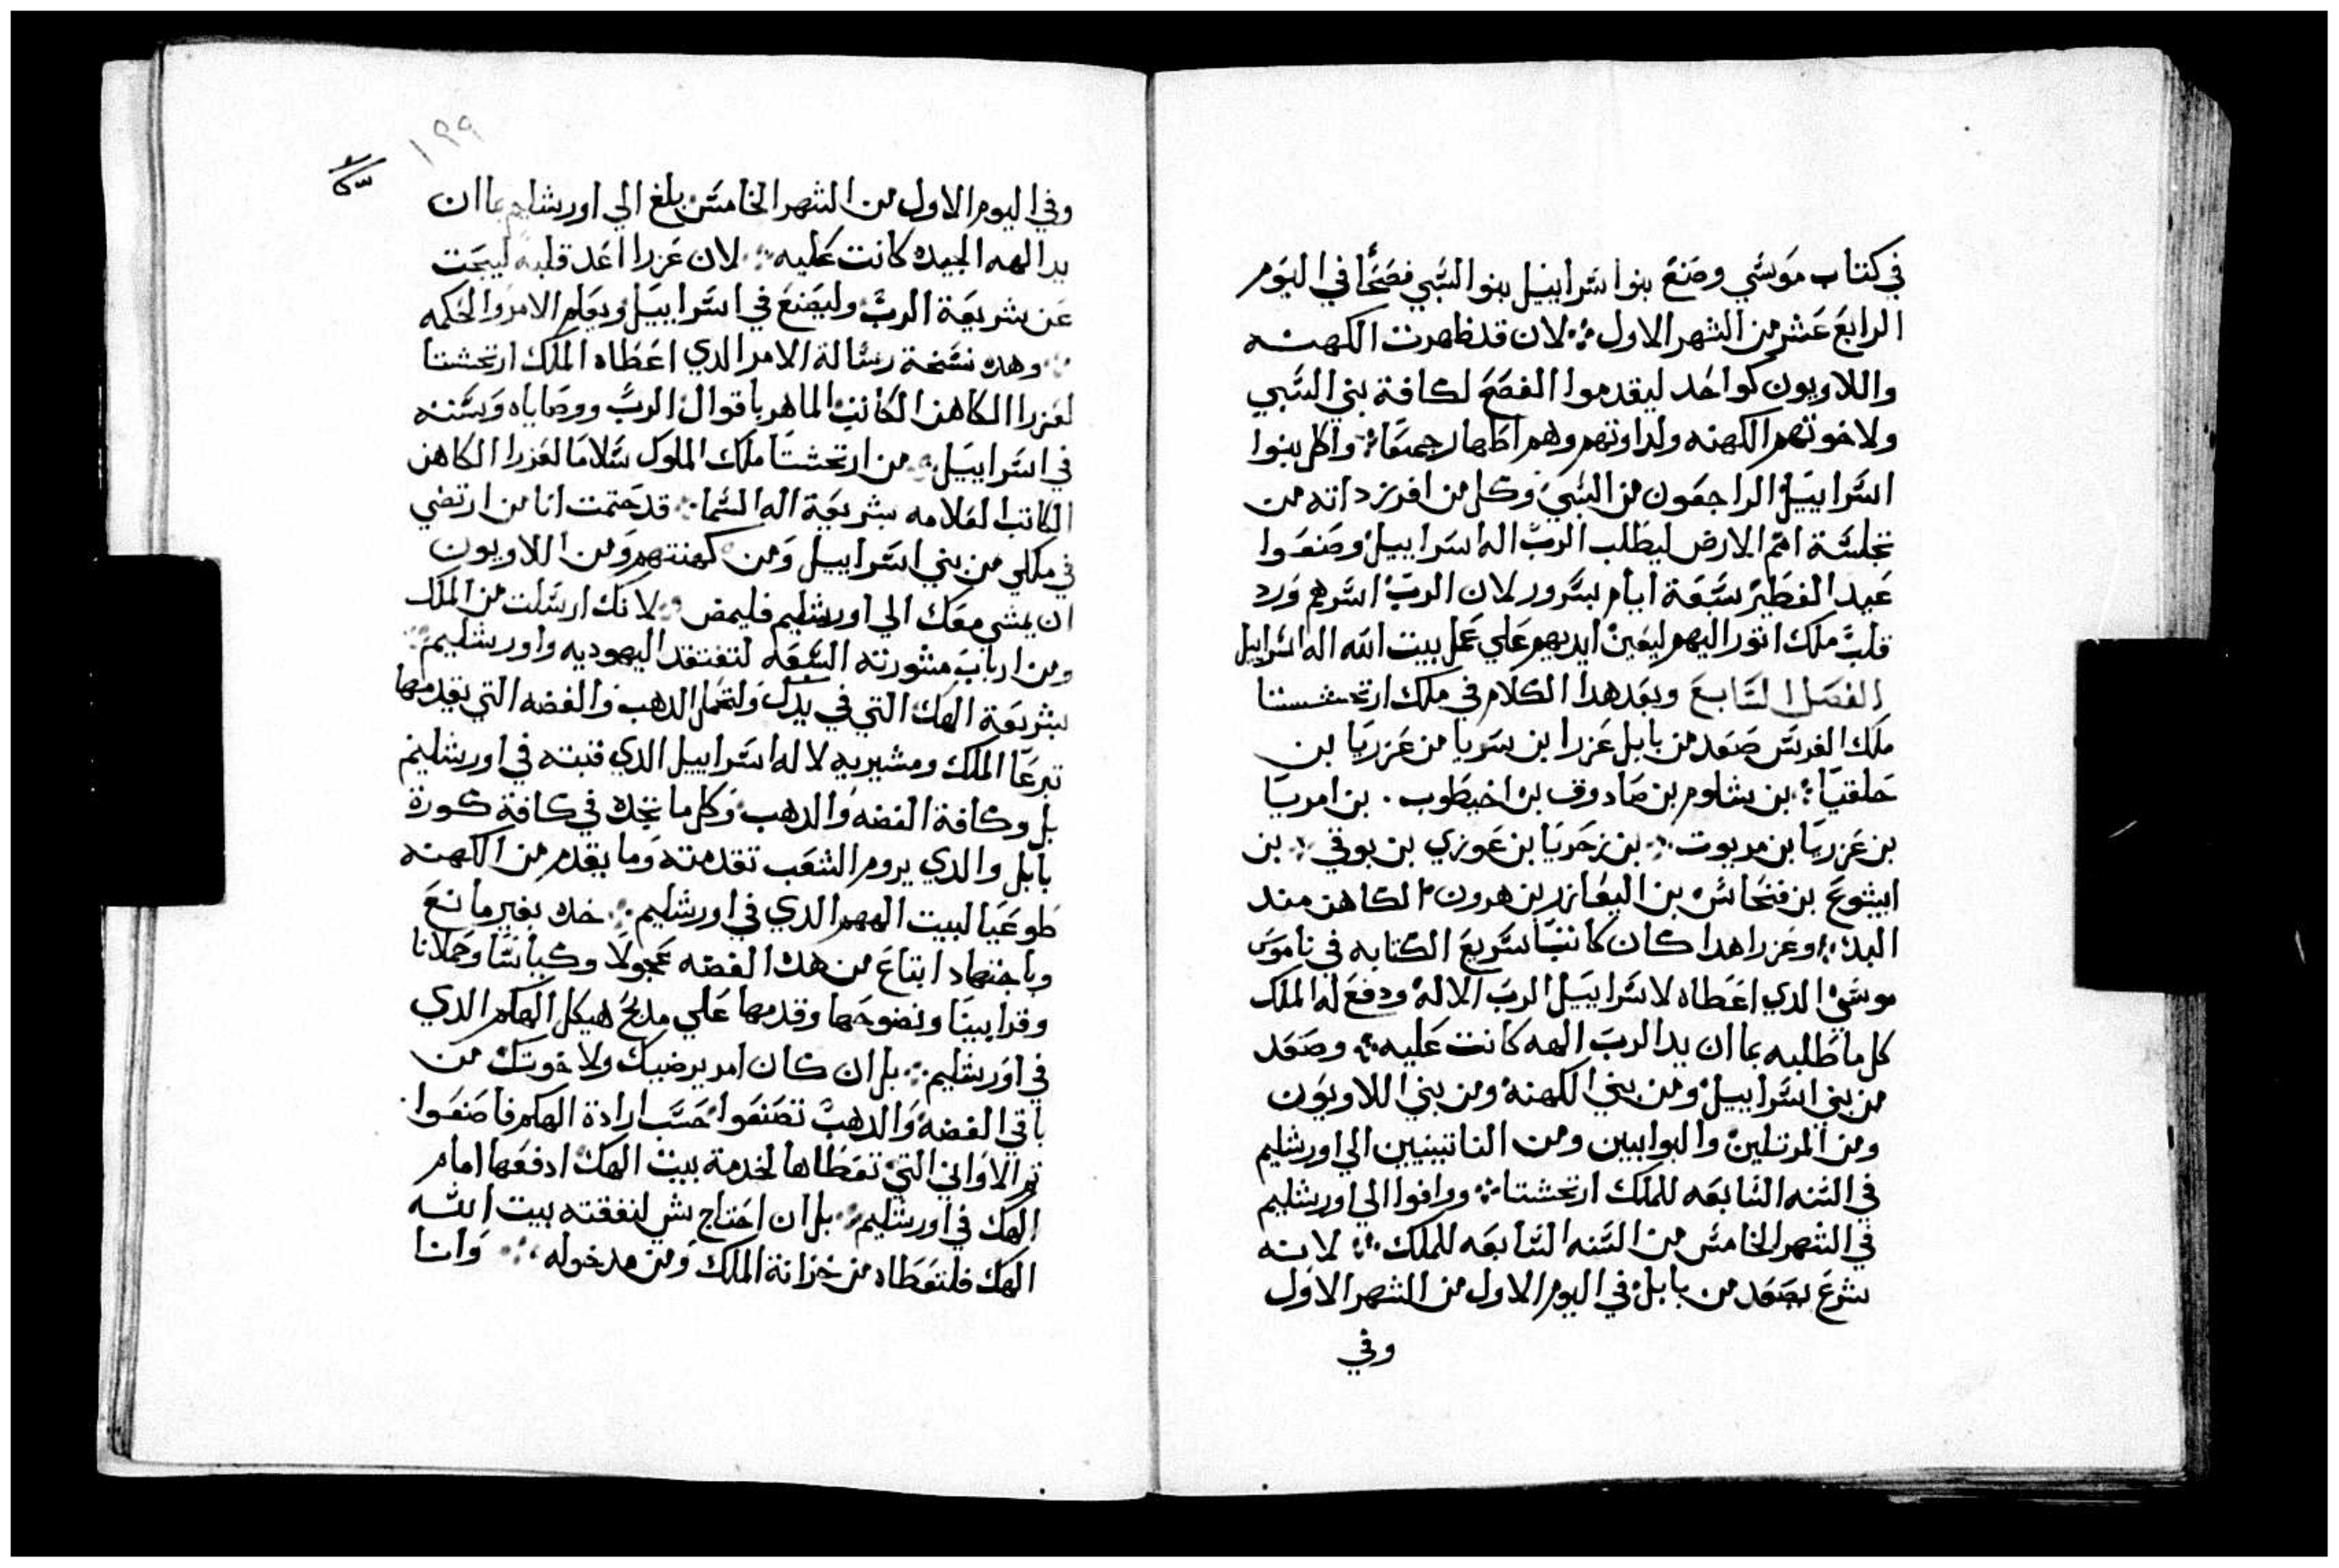 في كتاب موسي وصنع بنوا اسراييل بنوا السبي فصحًا في اليوم
الرابع عشر من الشهر الاول لان قد ظهرت الكهنه
واللاويون كواحد ليقدموا الفصح لكافة بني السبي
ولاخوتهم الكهنه ولداوتهم وهم اطهار جميعا واكل بنوا
اسراييل الراجعون من السبي وكل من افرز داته من
نجلسة امم الارض ليطلب الرب اله اسراييل وصنعوا
عيد الفطير سبعة ايام بسرور لان الرب اسرهم ورد
قلب ملك اتور اليهم ليعين ايديهم علي عمل بيت الله اله اسراييل
الفصل السابع وبعد هدا الكلام في ملك ارتحششتا
ملك الفرس صعد من بابل عزرا بن سريا من عزريا بن
حلقيا بن شلوم بن صادوق بن اخيطوب بن امريا
بن عزريا بن مريوت بن زحريا بن عوزي بن بوقي بن
ابيشوع بن فنحاس بن اليعازر بن هرون الكاهن مند
البدء وعزرا هدا كان كاتبًا سريع الكتابه في ناموس
موسي الدي اعطاه لاسراييل الرب الاله ودفع له الملك
كل ما طلبه بما ان يد الرب الهه كانت عليه وصعد
من بني اسراييل ومن بني الكهنه ومن بني اللاويون
ومن المرتلين والبوابين ومن الناتينيين الي اورشليم
في السنه السابعه للملك ارتحششتا ووافوا الي اورشليم
في الشهر الخامس من السنه السابعه للملك لانه
شرع بصعد من بابل في اليوم الاول من الشهر الاول
وفي
١٩٩
وفي اليوم الاول من الشهر الخامس بلغ الي اورشليم بما ان
يد الهه الجيده كانت عليه لان عزرا اعد قلبه ليبحت
عن شريعة الرب وليصنع في اسراييل ويعلم الامر والحكمه
وهده نسخة رسالة الامر الدي اعطاه الملك ارتحششتا
لعزرا الكاهن الكاتب الماهر باقوال الرب ووصاياه وسننه
في اسراييل من ارتحششتا ملك الملوك سلاما لعزرا الكاهن
الكاتب العلامه شريعة اله السما قد حتمت انا من ارتضي
في ملكي من بني اسراييل ومن كهنتهم ومن اللاويون
ان يمشي معك الي اورشليم فليمض لانك ارسلت من الملك
ومن ارباب مشورته السبعه لتفتقد اليهوديه واورشليم
بشريعة الهك التي في يدك ولتحمل الدهب والفضه التي يقدمها
تبرعا الملك ومشيريه لاله اسراييل الدي قبته في اورشليم
بل وكافة الفضه والدهب وكل ما تجده في كافة كورة
بابل والدي يروم الشعب تقدمته وما يقدم من الكهنه
طوعيا لبيت الههم الدي في اورشليم خده بغير مانع
وباجتهاد ابتاع من هده الفضه عجولا وكباشا وحملانا
وقرابينا ونضوحها وقدمها علي مدبح هيكل الهكم الدي
في اورشليم بل ان كان امر يرضيك ولاخوتك من
باقي الفضه والدهب تصنعوا حسب ارادة الهكم فاصنعوا
تم الاواني التي تعطاها لخدمة بيت الهك ادفعها امام
الهك في اورشليم بل ان احتاج شي لنفقته بيت الله
الهك فلتعطاه من خزانة الملك ومن مدخوله وانا